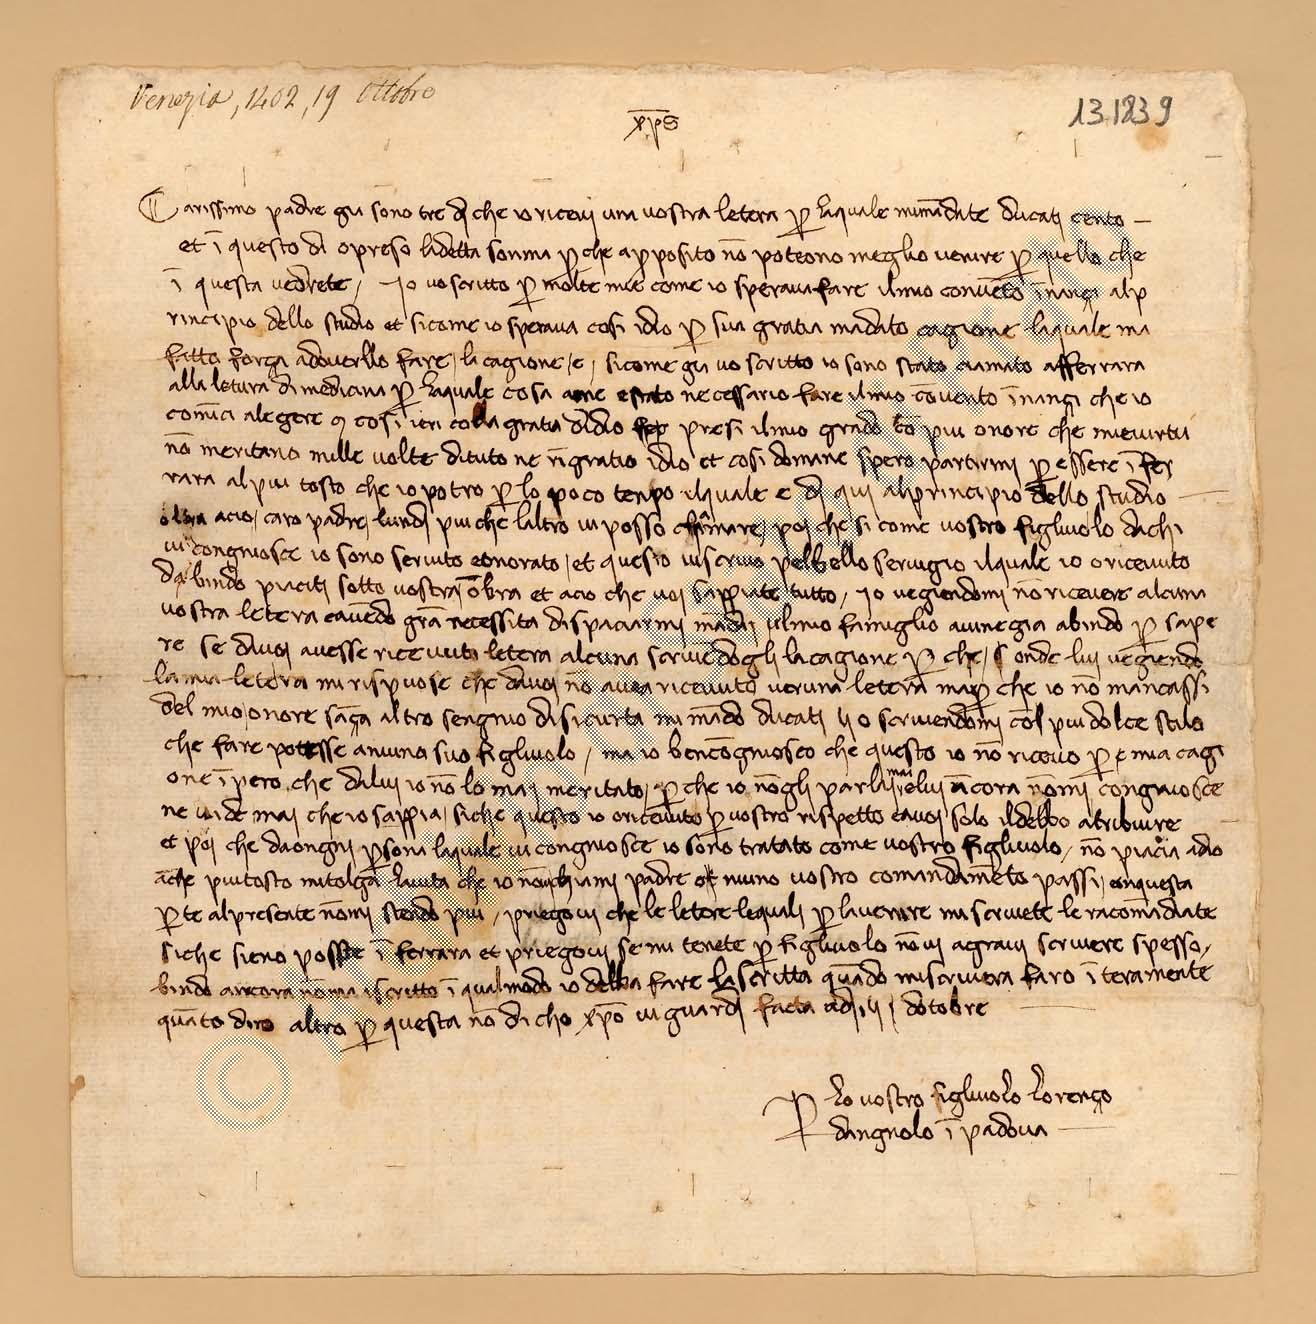 Venezia, 1402, 19 Ottobre
131839
xp̄s
Carissimo padre gia sono tre dj che io ricevj una vostra letera p̱ laquale mimādate ducatj cento
et ī questo dì o preso ladetta somma p̱ che apposito nō poteono meglio venire p̱ quello che
ī questa vedrete / Io vo scritto p̱ molte mie come io sperava fare ilmio convēto īnançi alp
rincipio dello studio et sicome io sperava cosi idio p̱ sua gratia màdato cagione laquale ma
fatto força adoverllo fare / la cagione / e / sicome gia vo scritto io sono stato ciamato afferrara
alla letura di medicina p̱ laquale cosa ane estato necessario fare ilmio cōvento īnançi che io
comīci alegere et cosi ieri colla gratia didio presi ilmio grado cō piu onore che mievirtu
nō meritano mille volte dituto ne rīgratio idio et cosi domane spero partirmj p̱ essere ī fer
rara alpiu tosto che io potro p̱ lo poco tenpo ilquale e dj quj alprincipio dello studio
acio / caro padre / lundj piu che laltro vi posso / poj che si come vostro figluvolo dachi
vi congniosce io sono servito eonorato / et questo viscrivo pelbello servigio ilquale io oricevuto
da bindo piacitj sotto vostra ōbra et acio che voj sappiate tutto / Io vegiendomi nō ricevere alcuna
vostra letera eavēdo grā necessita dispaciarmj mādaj ilmio famiglio avinegia abindo p̱ sape
re se davoj avesse ricevuti letera alcuna scrivēdogli lacagione p̱ che / onde luj vegiendo
la mia letera mi rispuose che davoj nō avea ricevuto veruna letera map̱ che io nō mancassi
del mio onore sāça altro sengnio disicurta mi mādo ducatj lj o scrivendomj col piu dolce stilo
che fare potesse aniuno suo figluvolo / ma io bencōgniosco che questo io nō ricevo p̱ mia cagi
one īpero che daluj io nō lo maj meritato / p̱ che io nōgli parlaj maj eluj ācora nōmj congniosce
ne vide maj che io sappia / siche questo io oricevuto p̱ vostro rispetto eavoj solo ildebo atribuire
et poj che daongnj p̱sona laquale vi congniosce io sono tratato come vostro figluvolo / nō piacia adio
āche piutosto mitolga lavita che io nōvichiami padre niuno vostro comandamēto passi / enquesta
p̱te alpresente nōmj stendo piu / priegovj che le letere lequalj p̱ lavenire mi scrivete le racomādiate
siche sieno poste ī ferrara et priegovj se mi tenete p̱ figluvolo nōvj agravi scrivere spesso /
bindo ancora nōma iscritto ī qualmodo io debba fare lascritta quādo miscrivera faro īteramente
quāto dira altro p̱ questa nō dicho xp̄o vi guardj facta adj dotobre
P̱ lo vostro figluvolo lorenço
dangnolo ī padova